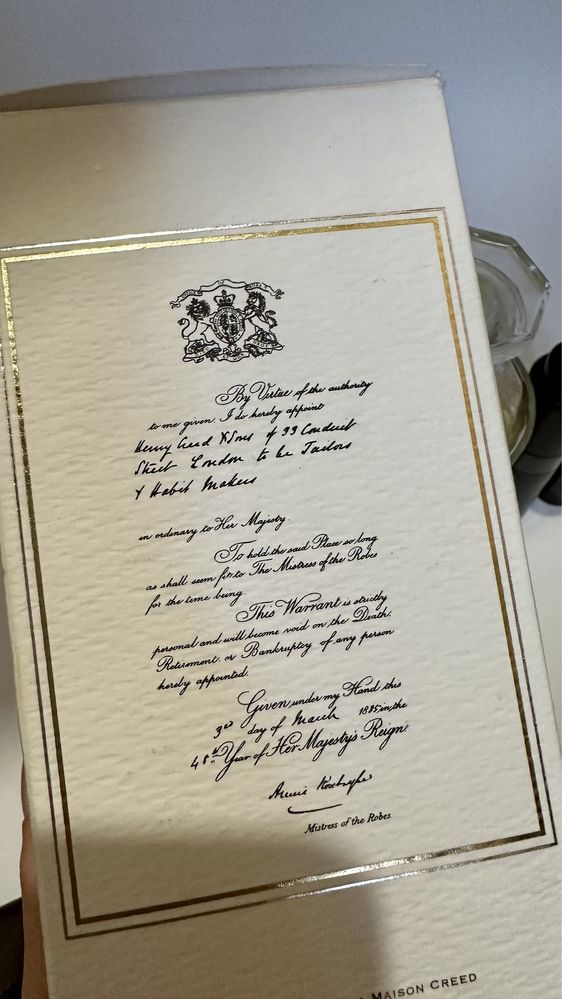 By Virtue of the authority
to me given. I do hereby appoint
Henry Creed & Sons of 33 Conduit
Street London to be Tailors
& Habit Makers
in ordinary to Her Majesty.
To hold the said Place so long
as shall seem fit to The Mistress of the Robes
for the time being.
This Warrant is strictly
personal and will become void on the Death,
Retirement, or Bankruptcy of any person
hereby appointed.
Given under my Hand this
3rd day of March 1885 in the
48th Year of Her Majesty's Reign.
Mistress of the Robes
MAISON CREED